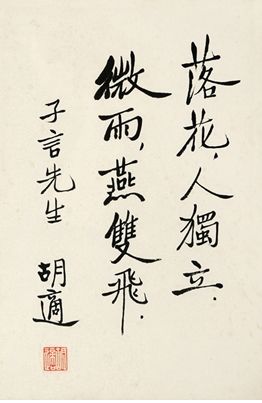 落花，人獨立．
微雨，燕雙飛．
子言先生
胡適